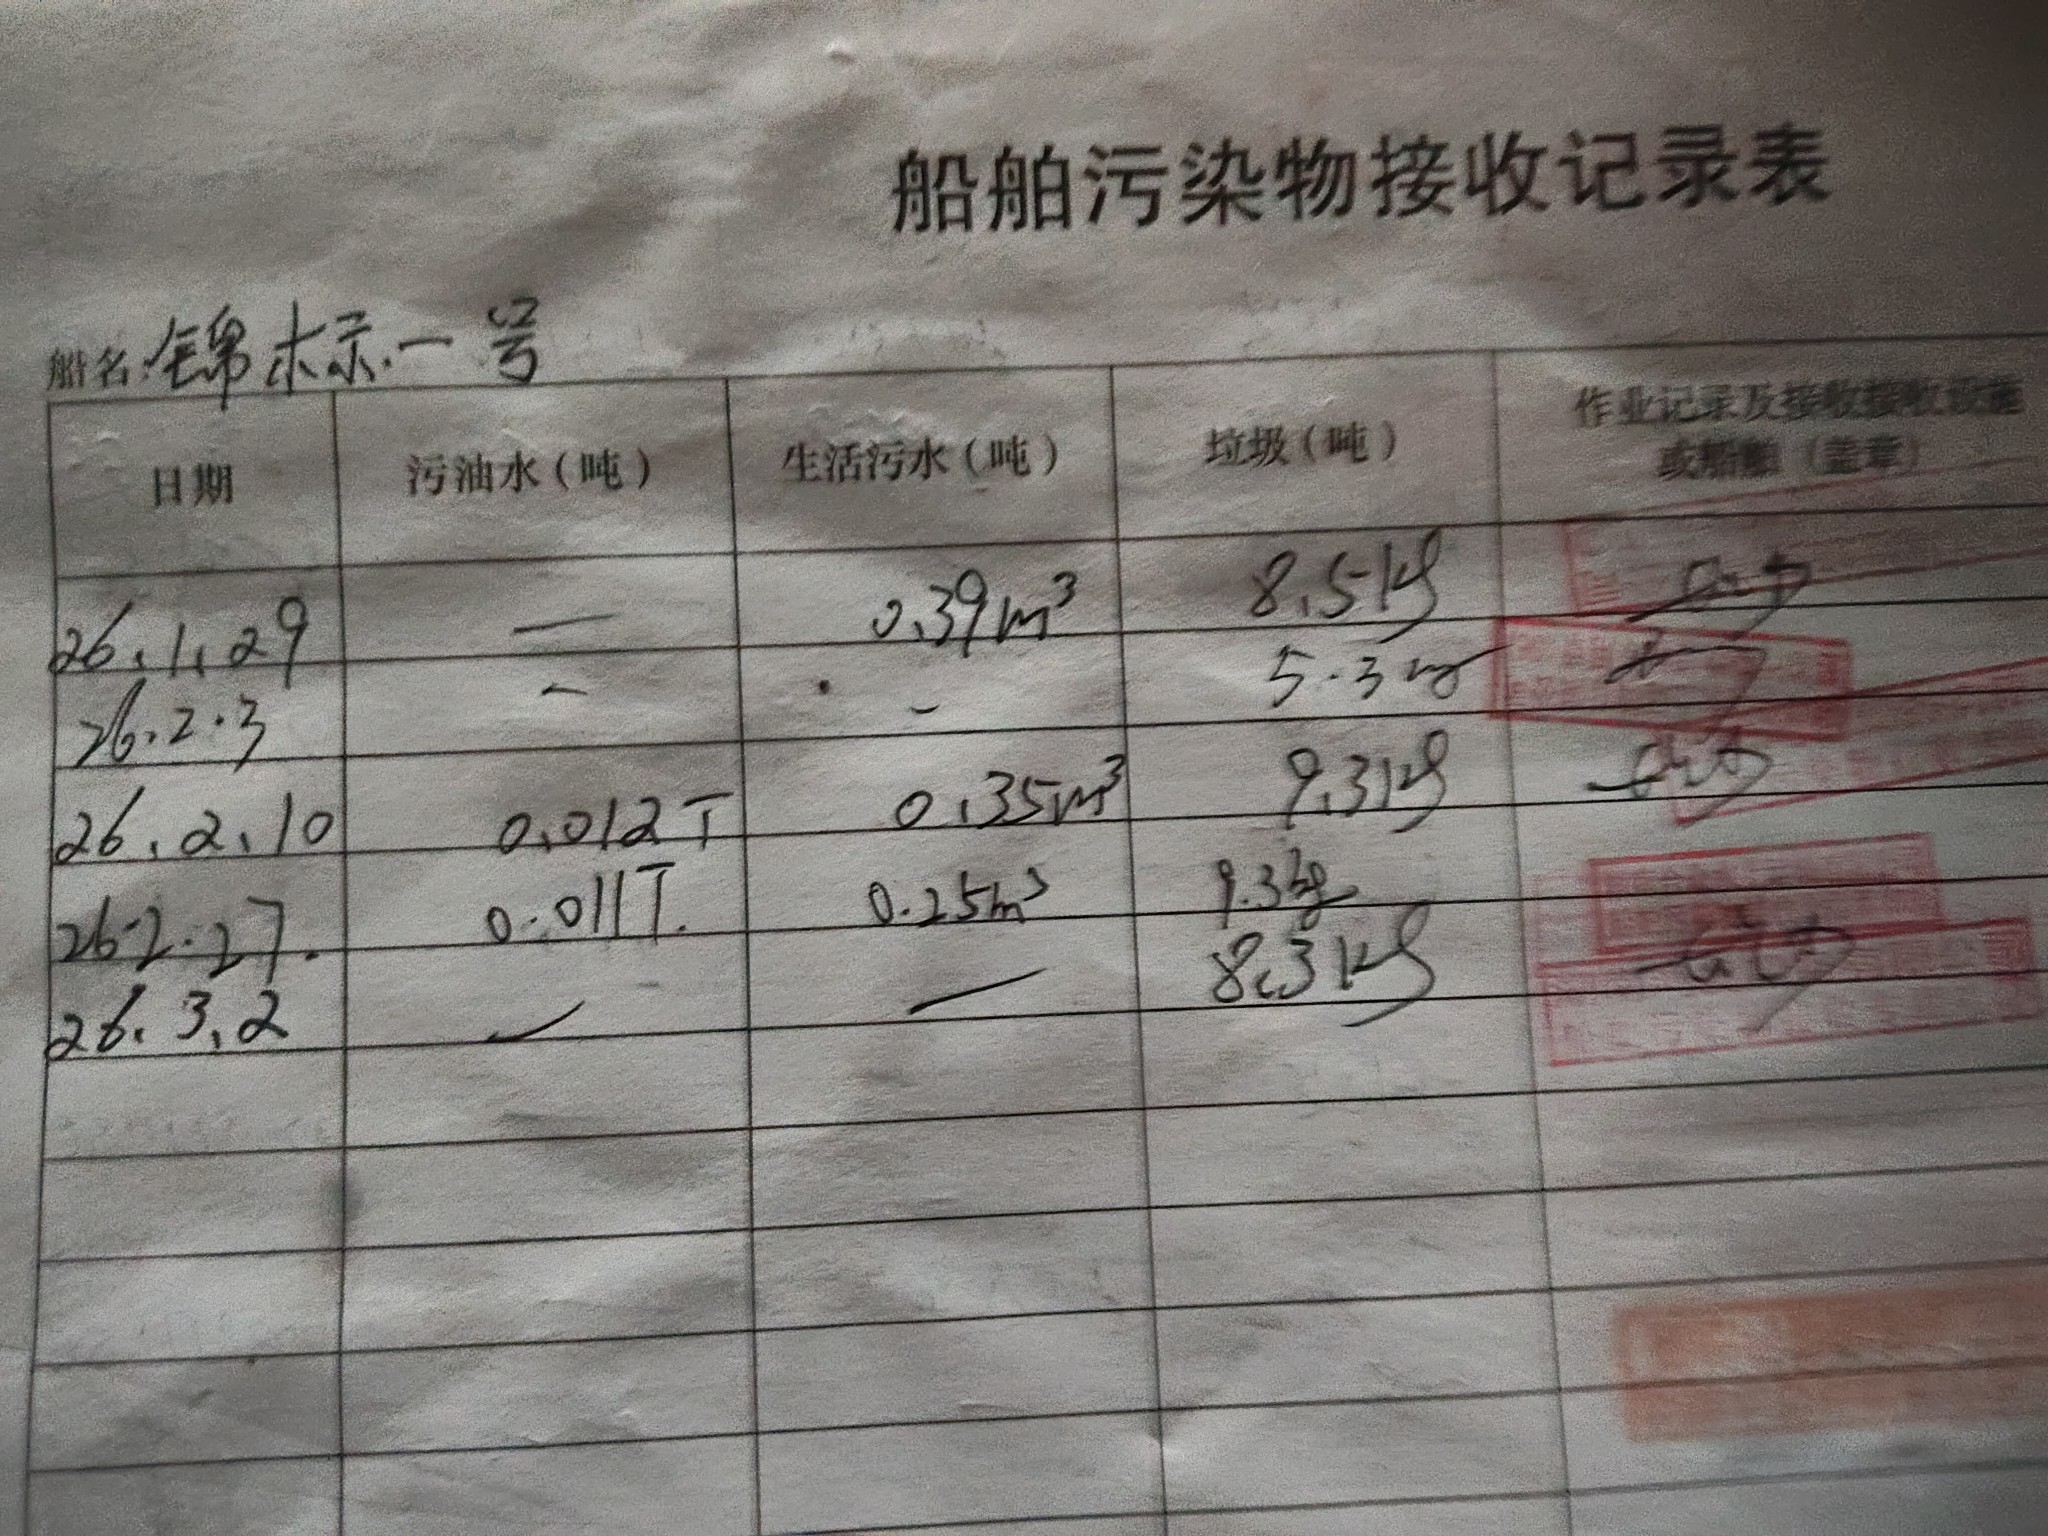 船舶污染物接收记录表
船名:锦标一号
日期 污油水(吨) 生活污水(吨) 垃圾(吨) 作业记录及接收接收设施
或船舶(盖章)
26.1.29 — 0.39m³ 8.5kg
26.2.3 - - 5.3kg
26.2.10 0.012T 0.35m³ 9.3kg
26.2.27. 0.011T. 0.25m³ 9.3kg
26.3.2 — — 8.3kg